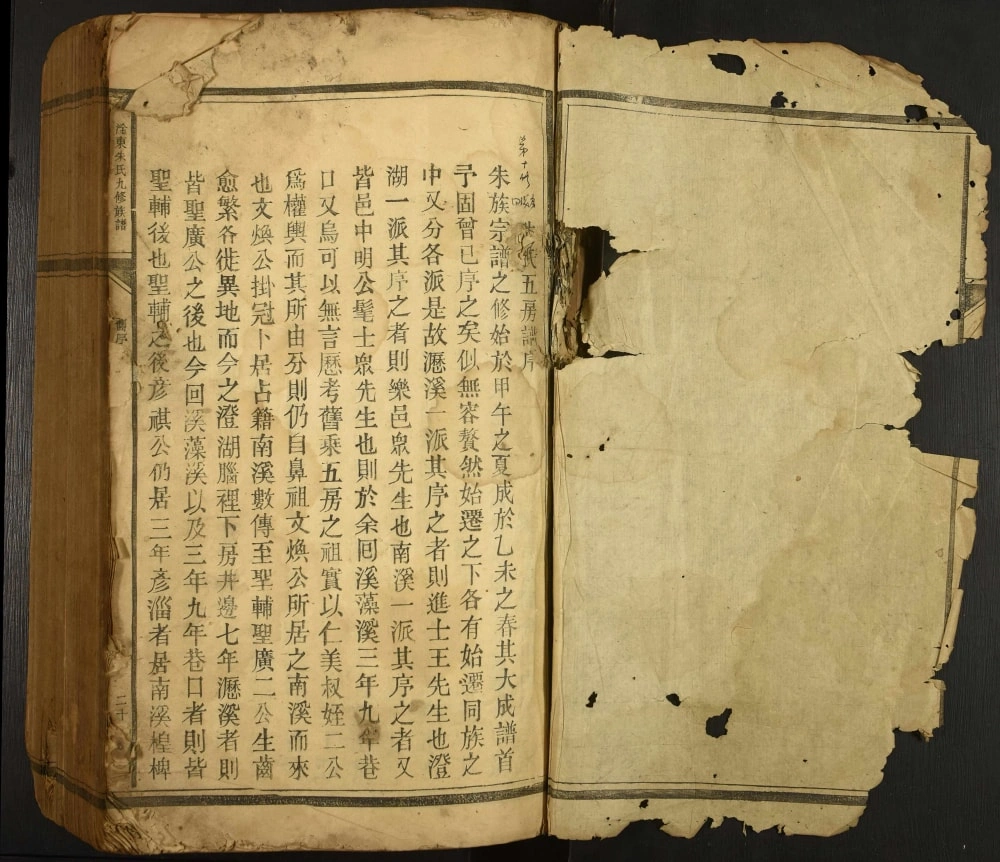 氏五房譜序
朱族宗譜之修始於甲午之夏成於乙未之春其大成譜首
予固曾已序之矣似無容贅然始遷之下各有始遷同族之
中又分各派是故灅溪一派其序之者則進士王先生也澄
湖一派其序之者則樂邑眾先生也南溪一派其序之者又
皆邑中明公髦士眾先生也則於余囘溪藻溪三年九年巷
口又烏可以無言歷考舊乘五房之祖實以仁美叔姪二公
爲權輿而其所由分則仍自鼻祖文煥公所居之南溪而來
也文煥公掛冠卜居占籍南溪數傳至聖輔聖廣二公生齒
愈繁各徙異地而今之澄湖腦裡下房井邊七年灅溪者則
皆聖廣公之後也今回溪藻溪以及三年九年巷口者則皆
聖輔後也聖輔之後彦祺公仍居三年彦淄者居南溪楻椑
東朱氏九修族譜
序
二十